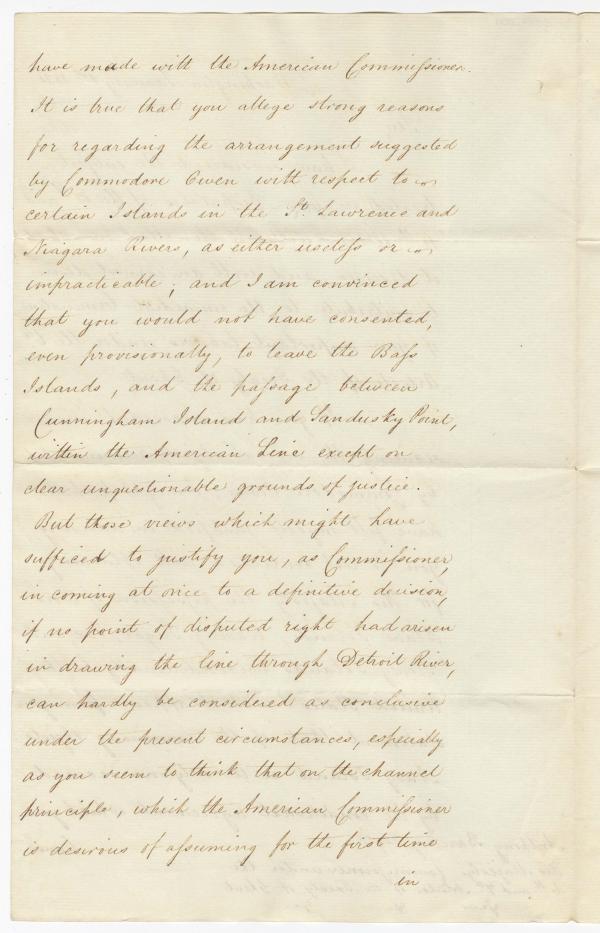 have made with the American Commissioner.
It is true that you allege strong reasons
for regarding the arrangement suggested
by Commodore Owen with respect to
certain Islands in the St. Lawrence and
Niagara Rivers, as either useless or
impracticable; and I am convinced
that you would not have consented,
even provisionally, to leave the Bass
Islands, and the passage between
Cunningham Island and Sandusky Point,
within the American Line except on
clear unquestionable grounds of justice.
But those views which might have
sufficed to justify you, as Commissioner,
in coming at once to a definitive decision,
if no point of disputed right had arisen
in drawing the line through Detroit River,
can hardly be considered as conclusive
under the present circumstances, especially
as you seem to think that on the channel
principle, which the American Commissioner
is desirous of assuming for the first time
in